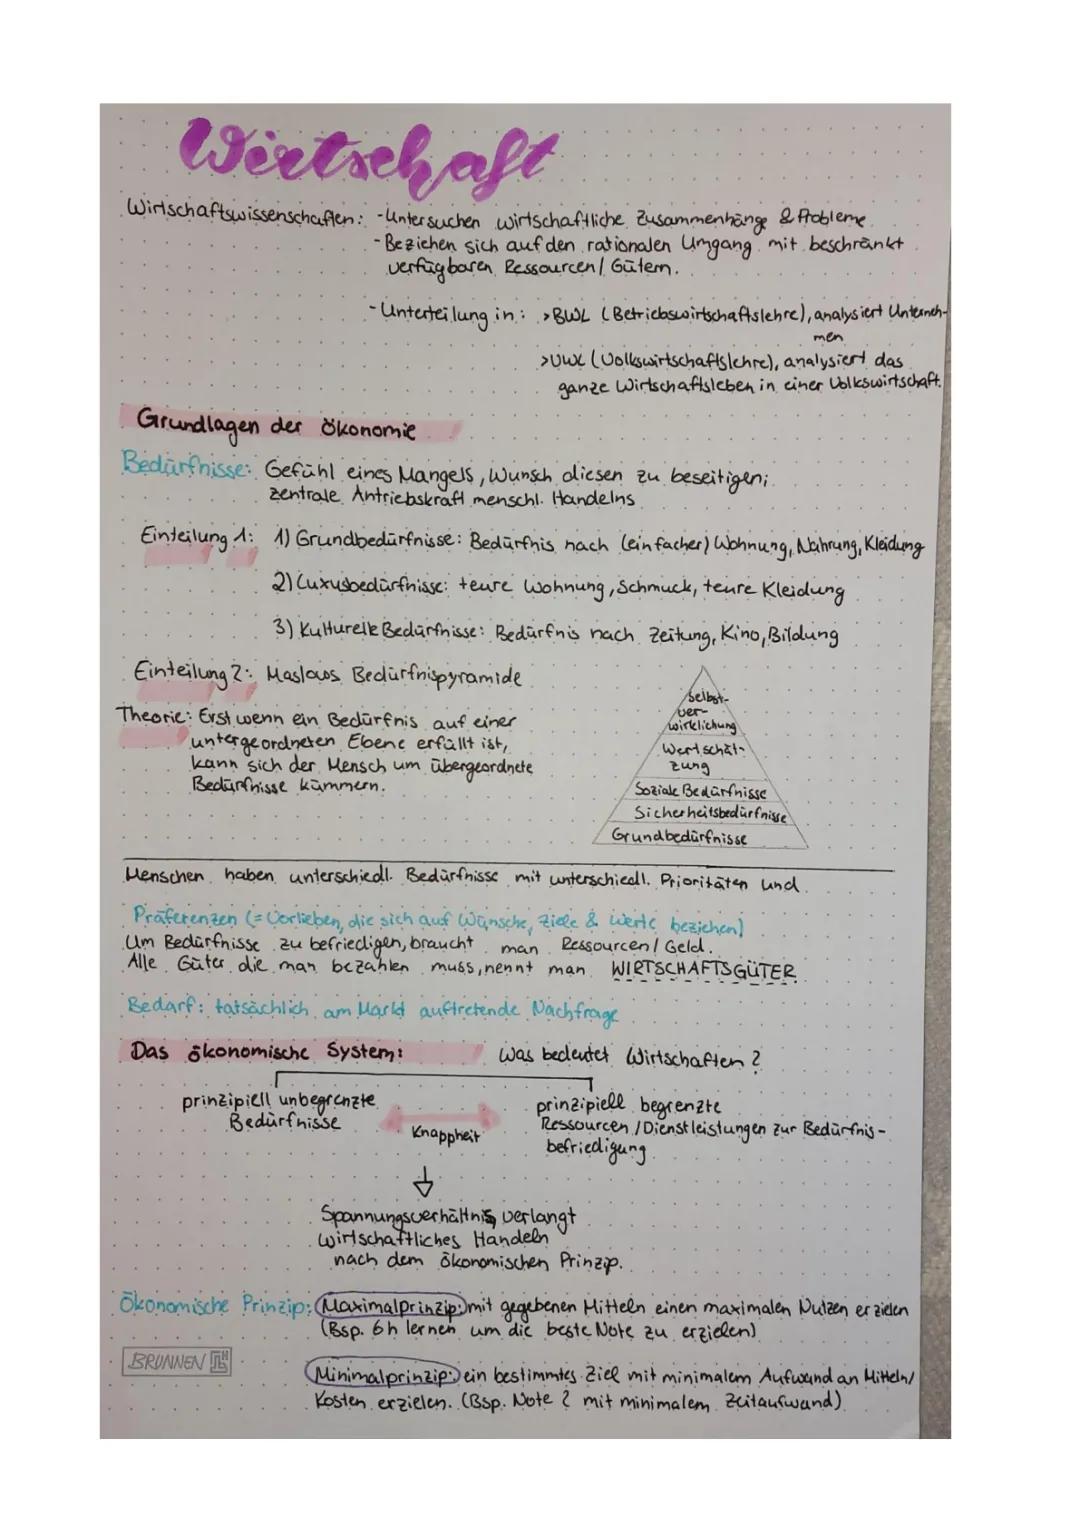 Wirtschaft
Wirtschaftswissenschaften: - Untersuchen wirtschaftliche Zusammenhänge & Probleme
- Beziehen sich auf den rationalen Umgang mit beschränkt
verfügbaren Ressourcen / Gütern.
- Unterteilung in: > BWL (Betriebswirtschaftslehre), analysiert Unterneh-
men
> VWL (Volkswirtschaftslehre), analysiert das
ganze Wirtschaftsleben in einer Volkswirtschaft.
Grundlagen der Ökonomie
Bedürfnisse: Gefühl eines Mangels, Wunsch diesen zu beseitigen;
zentrale Antriebskraft menschl. Handelns
Einteilung 1: 1) Grundbedürfnisse: Bedürfnis nach (einfacher) Wohnung, Nahrung, Kleidung
2) Luxusbedürfnisse: teure Wohnung, Schmuck, teure Kleidung
3) Kulturelle Bedürfnisse: Bedürfnis nach Zeitung, Kino, Bildung
Einteilung 2: Maslows Bedürfnispyramide
Theorie: Erst wenn ein Bedürfnis auf einer
untergeordneten Ebene erfüllt ist,
kann sich der Mensch um übergeordnete
Bedürfnisse kümmern.
Selbst-
ver-
wirklichung
Wertschät-
zung
Soziale Bedürfnisse
Sicherheitsbedürfnisse
Grundbedürfnisse
Menschen haben unterschiedl. Bedürfnisse mit unterschiedl. Prioritäten und
Präferenzen (= Vorlieben, die sich auf Wünsche, Ziele & Werte beziehen)
Um Bedürfnisse zu befriedigen, braucht man Ressourcen / Geld.
Alle Güter die man bezahlen muss, nennt man WIRTSCHAFTSGÜTER
Bedarf: tatsächlich am Markt auftretende Nachfrage
Das ökonomische System: Was bedeutet Wirtschaften?
prinzipiell unbegrenzte
Bedürfnisse
Knappheit
prinzipiell begrenzte
Ressourcen / Dienstleistungen zur Bedürfnis-
befriedigung
Spannungsverhältnis verlangt
wirtschaftliches Handeln
nach dem ökonomischen Prinzip.
Ökonomische Prinzip: Maximalprinzip: mit gegebenen Mitteln einen maximalen Nutzen erzielen
(Bsp. 6h lernen um die beste Note zu erzielen)
BRUNNEN
Minimalprinzip: ein bestimmtes Ziel mit minimalem Aufwand an Mitteln /
Kosten erzielen. (Bsp. Note 2 mit minimalem Zeitaufwand)